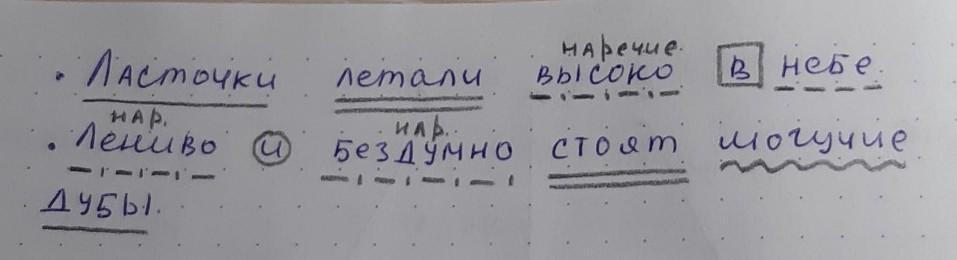 наречие.
• Ласточки летали высоко в небе.
нар. нар.
• Лениво и бездумно стоят могучие
дубы.